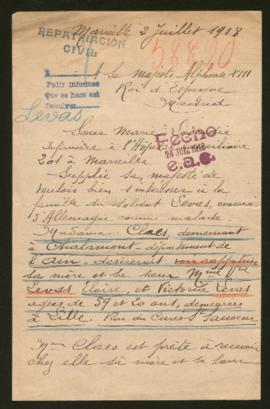 Marseille 2 Juillet 1918
REPATRIACION
CIVIL
58490
A Sa Majesté Alphonse XIII
Roi d'Espagne
Madrid
Pedir informes
que se hace est
Levas
Sœur Marie
Infirmière à l'Hôpital
201 à Marseille
Fecho
24 JUL 1918
e.a.c.
Supplie sa majesté de
vouloir bien s'intéresser à la
famille du soldat Levas, évacué
d'Allemagne comme malade.
Madame Claes, demeurant
à Chalamont, département de
l'Ain, désirerait
sa mère et sa sœur Mme Vve
Levas Elaire, et Victoria Levas
agées de 59 et 20 ans, demeurées
à Lille, Rue du Curé St Sauveur
Mme Claes est prête à recevoir
chez elle sa mère et sa sœur